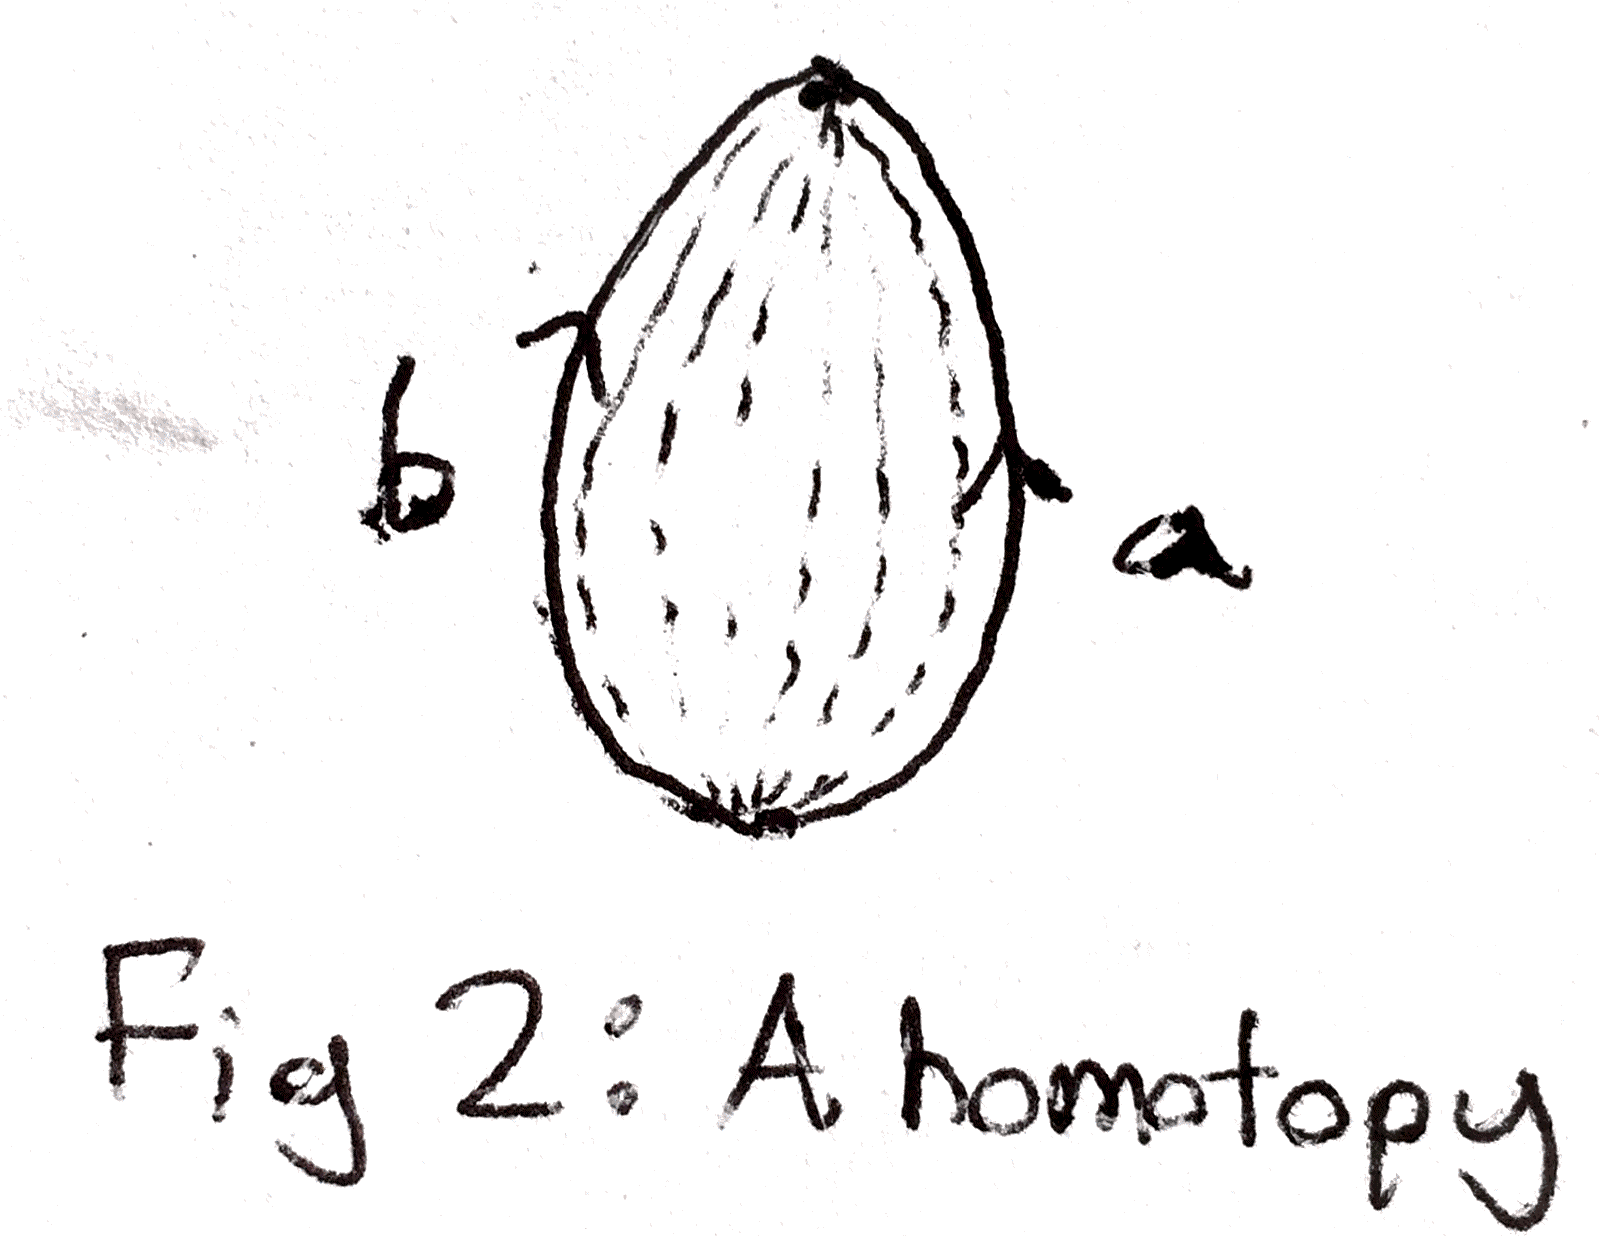 b
a
Fig 2: A homotopy